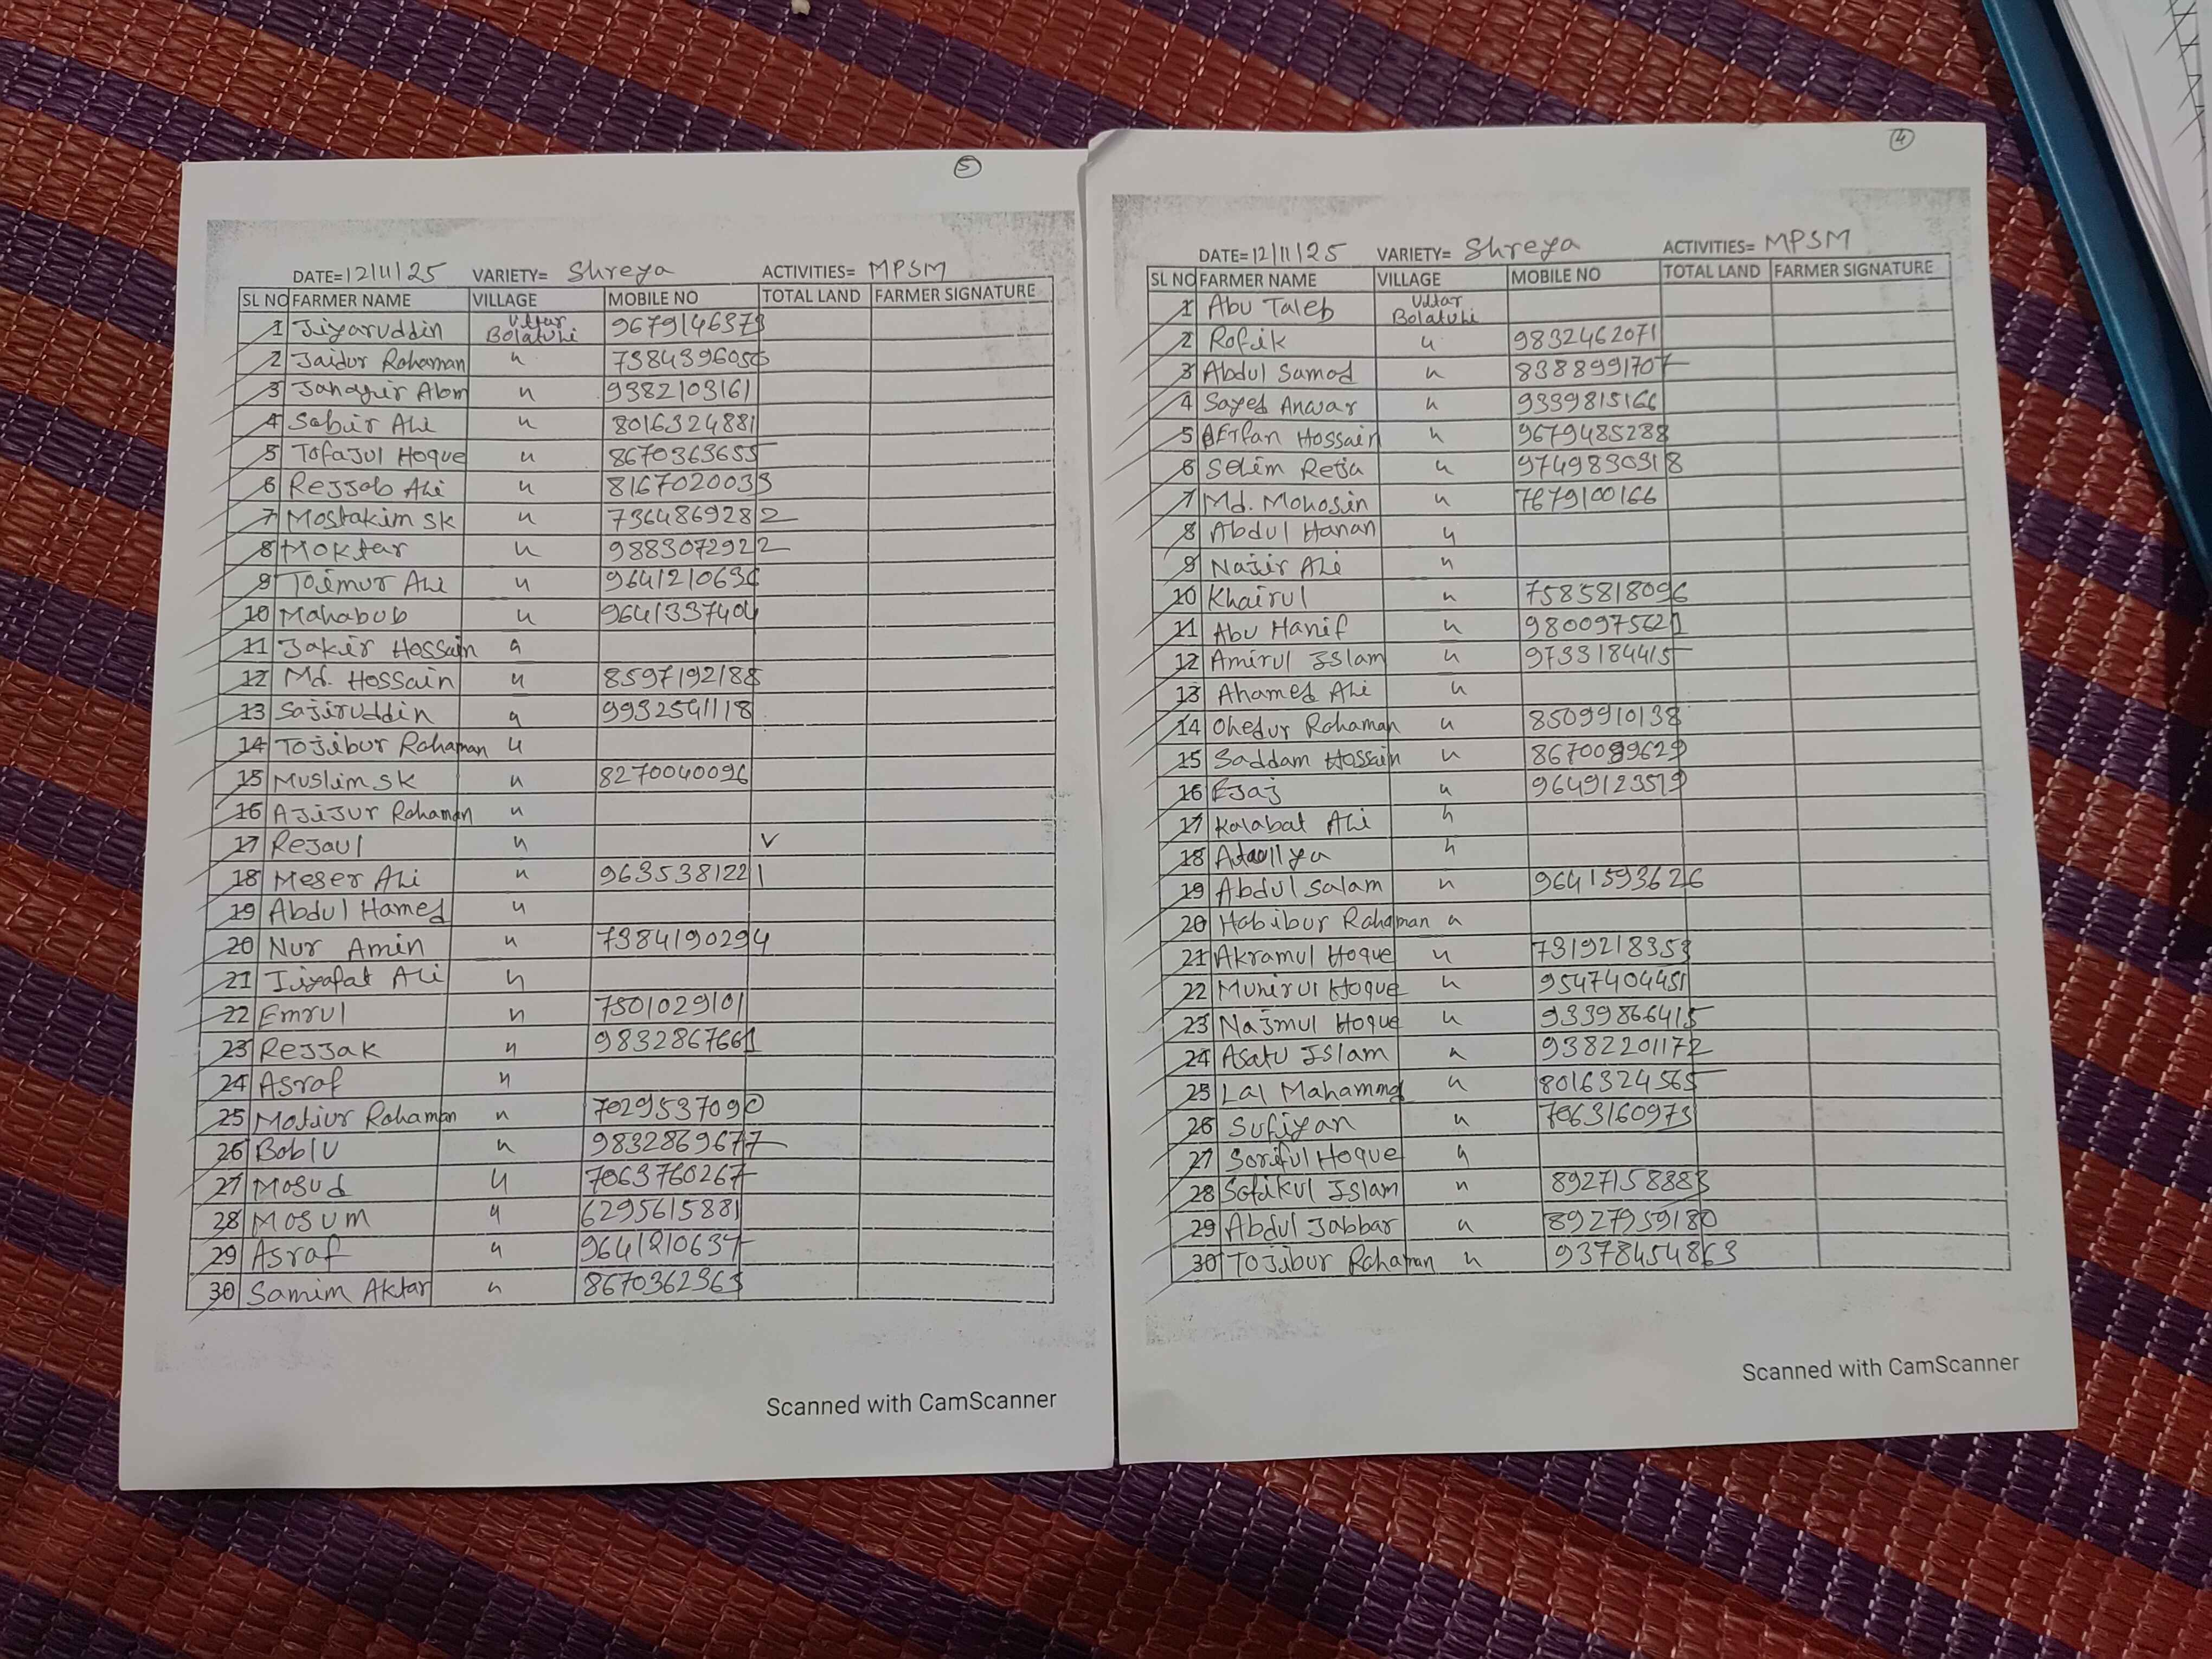 5
DATE=12/11/25 VARIETY= Shreya ACTIVITIES= MPSM
SL NO FARMER NAME VILLAGE MOBILE NO TOTAL LAND FARMER SIGNATURE
1 Jiyaruddin Uttar Bolatuli 9679146373
2 Jaidur Rahaman " 7384396056
3 Jahagir Alom " 9382103161
4 Sabir Ali " 8016324881
5 Tofajul Hoque " 8670363655
6 Rejjob Ali " 8167020033
7 Mostakim sk " 7364869282
8 Moktar " 9883072922
9 Toimur Ali " 964121063
10 Mahabub " 9641337404
11 Jakir Hossain "
12 Md. Hossain " 8597192188
13 Sajiruddin " 9932541118
14 Tojibur Rahaman "
15 Muslim sk " 8270040096
16 Ajijur Rahaman "
17 Rejaul " v
18 Meser Ali " 9635381221
19 Abdul Hamed "
20 Nur Amin " 7384190294
21 Jiyafat Ali "
22 Emrul " 7501029101
23 Rejjak " 9832867661
24 Asraf "
25 Motiur Rahaman " 7029537090
26 Boblu " 9832869677
27 Mosud " 7063760267
28 Mosum " 6295615881
29 Asraf " 9641210637
30 Samim Aktar " 8670362363
Scanned with CamScanner
4
DATE=12/11/25 VARIETY= Shreya ACTIVITIES= MPSM
SL NO FARMER NAME VILLAGE MOBILE NO TOTAL LAND FARMER SIGNATURE
1 Abu Taleb Uttar Bolatuli
2 Rofik " 9832462071
3 Abdul Samad " 8388991707
4 Sayed Anwar " 9339815166
5 Erfan Hossain " 9679485288
6 Selim Reja " 9749830318
7 Md. Mohosin " 7679100166
8 Abdul Hanan "
9 Najir Ali "
10 Khairul " 7585818096
11 Abu Hanif " 9800975621
12 Amirul Islam " 9733184415
13 Ahamed Ali "
14 Ohedur Rahaman " 8509910138
15 Saddam Hossain " 8670089629
16 Ejaj " 9649123519
17 Kalabat Ali "
18 Ataollya "
19 Abdul Salam " 9641593626
20 Habibur Rahaman "
21 Akramul Hoque " 7319218353
22 Munirul Hoque " 9547404451
23 Najmul Hoque " 9339866415
24 Asatu Islam " 9382201172
25 Lal Mahammad " 8016324565
26 Sufiyan " 7063160973
27 Soriful Hoque "
28 Sofikul Islam " 8927158883
29 Abdul Jabbar " 8927959180
30 Tojibur Rahaman " 9378454863
Scanned with CamScanner